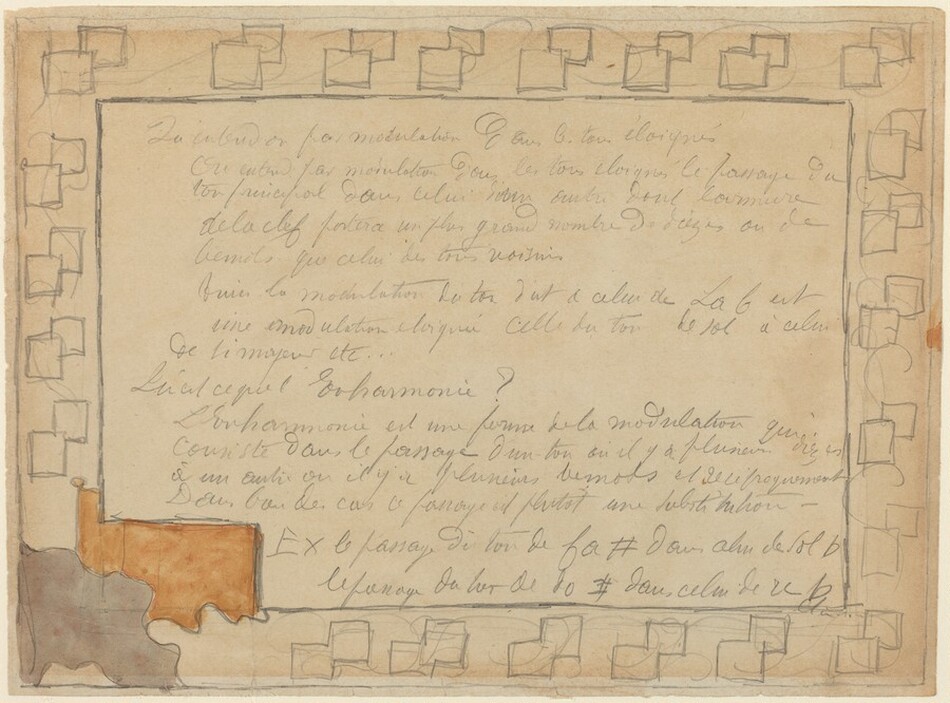 Qu'entend on par modulation Dans les tons éloignés
On entend par modulation Dans les tons eloignés le passage du
ton principal dans celui d'un autre dont l'armure
de la clef portera un plus grand nombre de dièzes ou de
bemols que celui des tons voisins
la modulation du ton d'ut à celui de La b est
une modulation eloignée celle du ton de sol à celui
de si majeur etc...
Qu'est ce que l'Enharmonie ?
L'Enharmonie est une forme de la modulation qui
consiste dans le passage d'un ton où il y a plusieurs dièzes
à un autre ou il y a plusieurs bemols et reciproquement
Dans tous les cas ce passage est plutôt une substitution –
Ex le passage du ton de fa # dans celui de sol b
le passage du ton de do # dans celui de re b